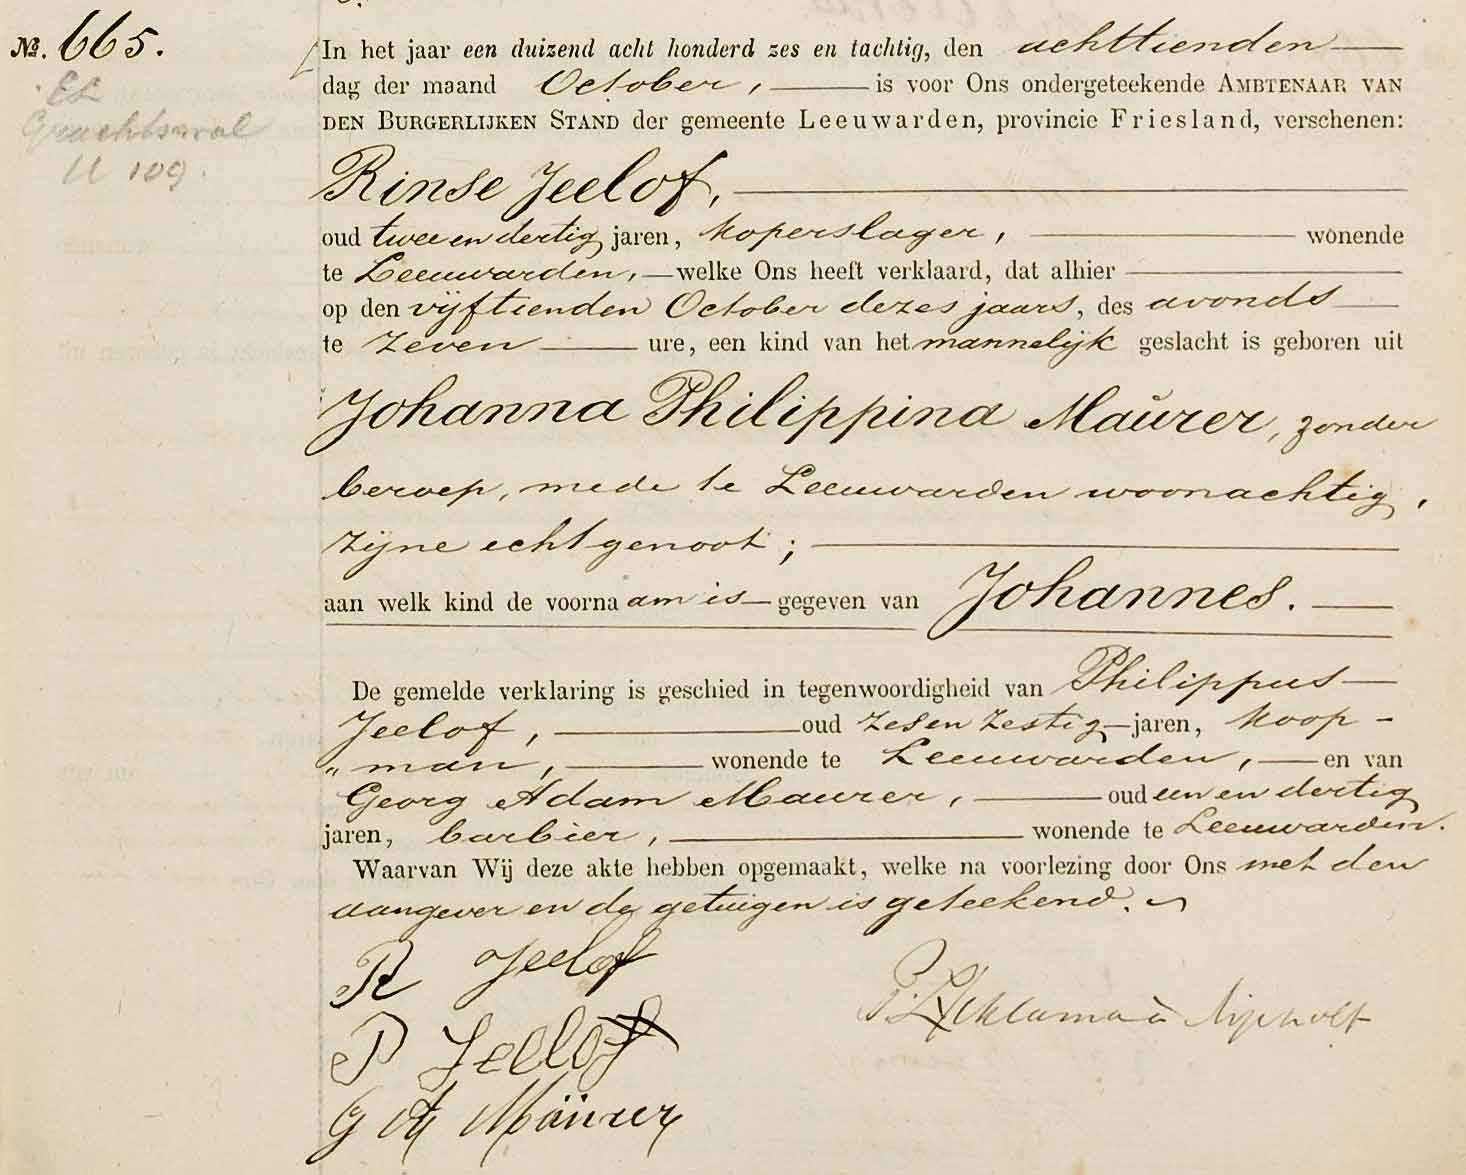 №. 665.
Grachtswal
U 109.
In het jaar een duizend acht honderd zes en tachtig, den achttienden
dag der maand October, is voor Ons ondergeteekende AMBTENAAR VAN
DEN BURGERLIJKEN STAND der gemeente Leeuwarden, provincie Friesland, verschenen:
Rinse Jeelof,
oud twee en dertig jaren, koperslager, wonende
te Leeuwarden, welke Ons heeft verklaard, dat alhier
op den vijftienden October dezes jaars, des avonds
te zeven ure, een kind van het mannelijk geslacht is geboren uit
Johanna Philippina Maŭrer, zonder
beroep, mede te Leeuwarden woonachtig,
zijne echtgenoot;
aan welk kind de voornaam is gegeven van Johannes.
De gemelde verklaring is geschied in tegenwoordigheid van Philippus
Jeelof, oud zes en zestig jaren, koop-
„man, wonende te Leeuwarden, en van
Georg Adam Maurer, oud een en dertig
jaren, barbier, wonende te Leeuwarden.
Waarvan Wij deze akte hebben opgemaakt, welke na voorlezing door Ons met den
aangever en de getuigen is geteekend.
R Jeelof
P Jeelof
G A Maürer